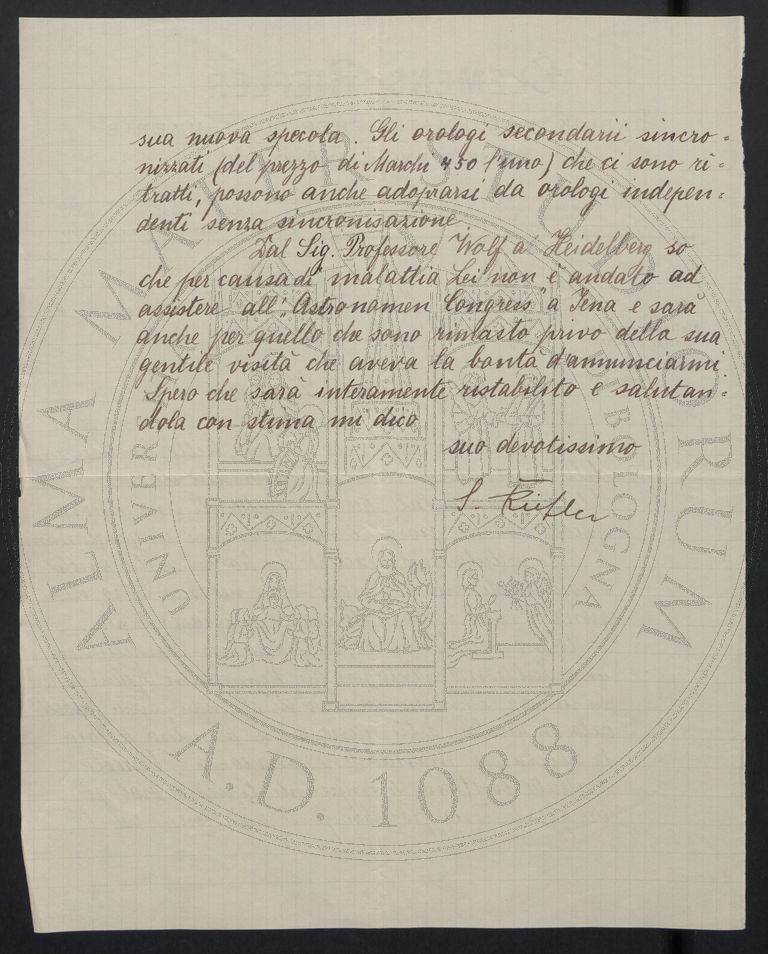 sua nuova specola. Gli orologi secondarii sincro=
nizzati (del prezzo di Marchi 450 l'uno) che ci sono ri=
tratti, possono anche adoprarsi da orologi indepen=
denti senza sincronisazione.
Dal Sig. Professore Wolf a Heidelberg so
che per causa di malattia Lei non è andato ad
assistere all' „Astronomen Congress" a Jena e sarà
anche per quello che sono rimasto privo della sua
gentile visità che aveva la bontà d'annunciarmi.
Spero che sarà interamente ristabilito e salutan=
dola con stima mi dico
suo devotissimo
S. Riefler
ALMA MATER STUDIORUM
UNIVERSITÀ DI BOLOGNA
A.D. 1088